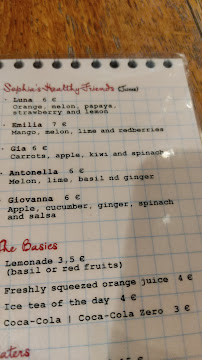 Sophia's Healthy Friends (Juices)
· Luna 6 €
Orange, melon, papaya,
strawberry and lemon
· Emilia 7 €
Mango, melon, lime and redberries
· Gia 6 €
Carrots, apple, kiwi and spinach
· Antonella 6 €
Melon, lime, basil nd ginger
· Giovanna 6 €
Apple, cucumber, ginger, spinach
and salsa
The Basics
Lemonade 3,5 €
(basil or red fruits)
Freshly squeezed orange juice 4 €
Ice tea of the day 4 €
Coca-Cola | Coca-Cola Zero 3 €